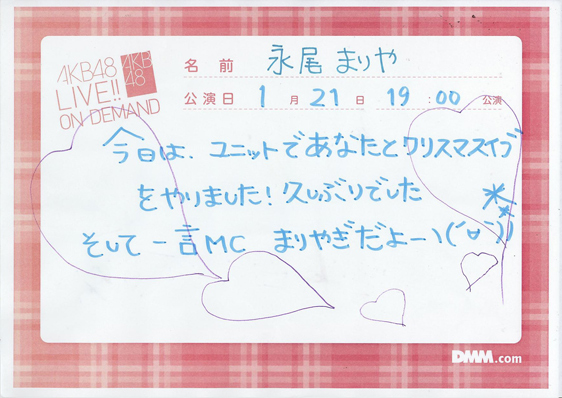 AKB48
LIVE!!
ON DEMAND
AKB
48
名前 永尾まりや
公演日 1月21日 19:00 公演
今日は、ユニットであなたとクリスマスイブ
をやりました!久しぶりでした
そして一言MC まりやぎだよーヽ(´ο`)ノ
DMM.com